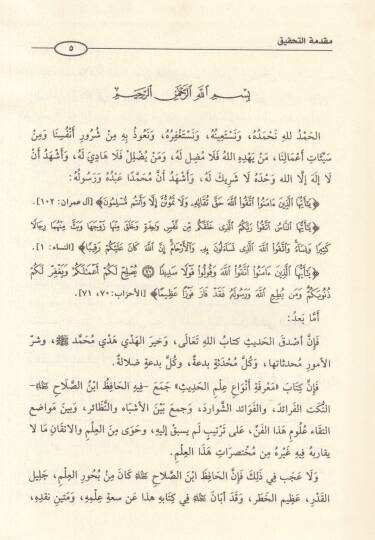 مقدمة التحقيق
٥
بِسْمِ اللَّهِ الرَّحْمَنِ الرَّحِيمِ
الحَمْدُ للهِ نَحْمَدُهُ، وَنَسْتَعِينُهُ، وَنَسْتَغْفِرُهُ، وَنَعُوذُ بِهِ مِنْ شُرُورِ أَنْفُسِنَا وَمِنْ
سَيِّئَاتِ أَعْمَالِنَا، مَنْ يَهْدِهِ اللهُ فَلَا مُضِلَّ لَهُ، وَمَنْ يُضْلِلْ فَلَا هَادِيَ لَهُ، وَأَشْهَدُ أَنْ
لَا إِلَهَ إِلَّا الله وَحْدَهُ لَا شَرِيكَ لَهُ، وَأَشْهَدُ أَنَّ مُحَمَّدًا عَبْدُهُ وَرَسُولُهُ:
﴿يَٰٓأَيُّهَا ٱلَّذِينَ ءَامَنُوا۟ ٱتَّقُوا۟ ٱللَّهَ حَقَّ تُقَاتِهِۦ وَلَا تَمُوتُنَّ إِلَّا وَأَنتُم مُّسْلِمُونَ﴾ [آل عمران: ١٠٢].
﴿يَٰٓأَيُّهَا ٱلنَّاسُ ٱتَّقُوا۟ رَبَّكُمُ ٱلَّذِى خَلَقَكُم مِّن نَّفْسٍ وَٰحِدَةٍ وَخَلَقَ مِنْهَا زَوْجَهَا وَبَثَّ مِنْهُمَا رِجَالًا
كَثِيرًا وَنِسَآءً وَٱتَّقُوا۟ ٱللَّهَ ٱلَّذِى تَسَآءَلُونَ بِهِۦ وَٱلْأَرْحَامَ إِنَّ ٱللَّهَ كَانَ عَلَيْكُمْ رَقِيبًا﴾ [النساء: ١].
﴿يَٰٓأَيُّهَا ٱلَّذِينَ ءَامَنُوا۟ ٱتَّقُوا۟ ٱللَّهَ وَقُولُوا۟ قَوْلًا سَدِيدًا ۝٧٠ يُصْلِحْ لَكُمْ أَعْمَٰلَكُمْ وَيَغْفِرْ لَكُمْ
ذُنُوبَكُمْ وَمَن يُطِعِ ٱللَّهَ وَرَسُولَهُۥ فَقَدْ فَازَ فَوْزًا عَظِيمًا﴾ [الأحزاب: ٧٠، ٧١].
أَمَّا بَعدُ:
فَإِنَّ أَصْدَقَ الحَدِيثِ كتابُ اللهِ تَعَالَى، وَخيرَ الهَدْيِ هَدْيُ مُحَمَّدٍ ﷺ، وشرّ
الأمورِ مُحدثاتها، وَكُلُّ مُحْدَثَةٍ بدعةٌ، وكُلُّ بدعةٍ ضلالةٌ.
فَإِنَّ كِتَابَ «مَعْرِفَة أَنْوَاعِ عِلْمِ الحَدِيثِ» جَمَعَ -فِيهِ الحَافِظُ ابْنُ الصَّلَاحِ رَحِمَهُ اللَّهُ-
النُّكَتَ الفَرائدَ، وَالفَوَائد الشَّوارد، وَجمعَ بَيْنَ الأشبَاه والنَّظائر، وَبَيْنَ مَواضعِ
التقاء عُلُومِ هَذا الفَنِّ، عَلَى تَرْتِيبٍ لم يسبقْ إليهِ، وحَوَى مِنَ العِلْمِ والاتقانِ مَا لَا
يقاربهُ فِيهِ غَيْرُه مِن مُختصراتِ هَذَا العِلْمِ.
وَلَا عَجَب فِي ذَلِكَ فَإِنَّ الحَافِظَ ابْنَ الصَّلاحِ رَحِمَهُ اللَّهُ كَانَ مِنْ بُحُورِ العِلْمِ، جَلِيل
القَدْرِ، عَظِيم الخَطَرِ، وَقَدْ أَبَانَ رَحِمَهُ اللَّهُ فِي كِتَابِهِ هذَا عَن سعةِ عِلمِهِ، وَمَتِينِ نقدِهِ،